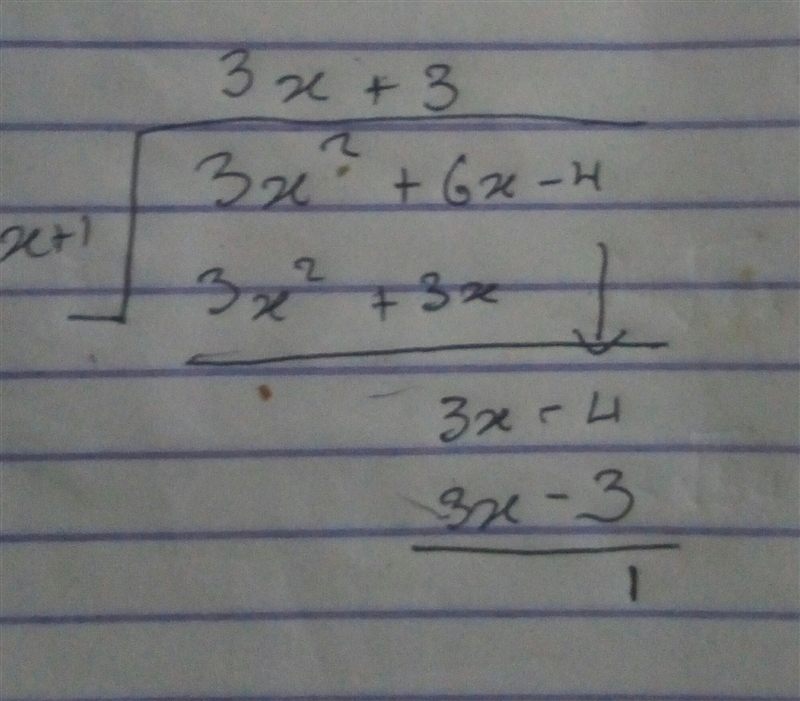 3x + 3
x+1
3x² + 6x - 4
3x² + 3x
3x - 4
3x - 3
1